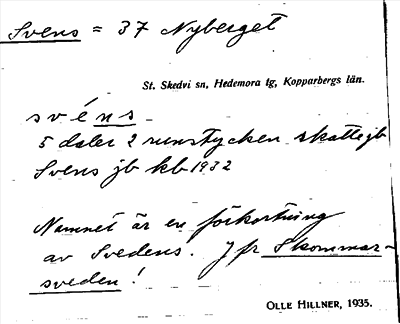 Svens = 37 Nyberget
St. Skedvi sn, Hedemora tg, Kopparbergs län.
svéns
5 daler 2 runstycken skattejb
Svens jb kb 1932
Namnet är en förkortning
av Svedens. Jfr Skommar-
sveden!
OLLE HILLNER, 1935.